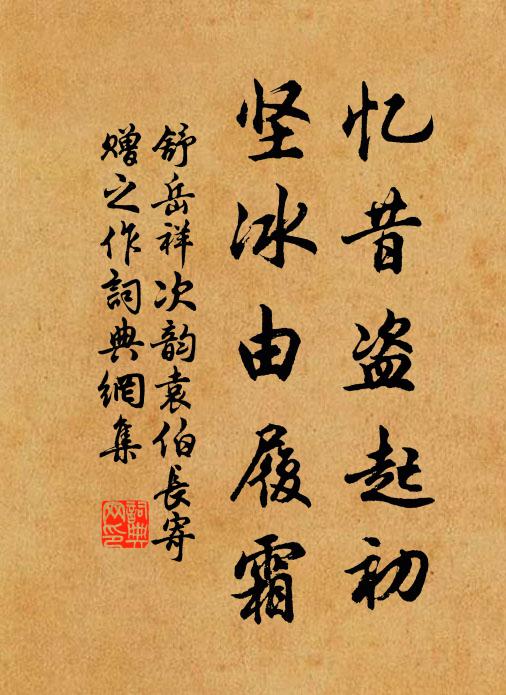 忆昔盗起初
坚冰由履霜
舒岳祥次韵袁伯长寄
赠之作詞典網集
詞典网印